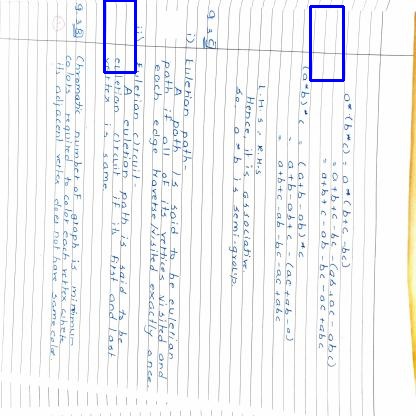 a*(b*c) = a*(b+c-bc)
= a+b+c-bc-(ab+ac-abc)
= a+b+c-ab-bc-ac+abc
(a*b)*c = (a+b-ab)*c
= a+b-ab+c-(ac+
= a+b+c-ab-bc-ac+abc
L.H.S = R.H.S
Hence, it is associative.
So, a*b is semi-group.
Q.3
i) Eulerian path-
A path is said to be eulerian
path if all of its vertices visited and
each edge traverse/visited exactly once.
ii) Eulerian circuit-
A eulerian path is said to be
eulerian circuit if its first and last
vertex is same.
Q.3
Chromatic number of graph is minimum
colors required to color each vertex where
its adjacent vertex does not have same color.